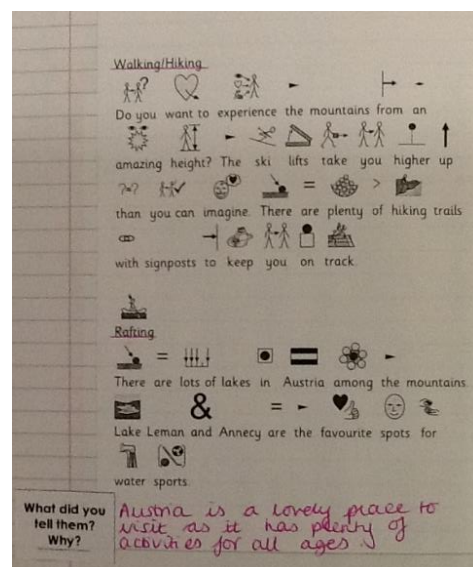 Walking/Hiking
Do you want to experience the mountains from an
amazing height? The ski lifts take you higher up
than you can imagine. There are plenty of hiking trails
with signposts to keep you on track.
Rafting
There are lots of lakes in Austria among the mountains.
&
Lake Leman and Annecy are the favourite spots for
water sports.
What did you
tell them?
Why?
Austria is a lovely place to
visit as it has plenty of
activities for all ages.